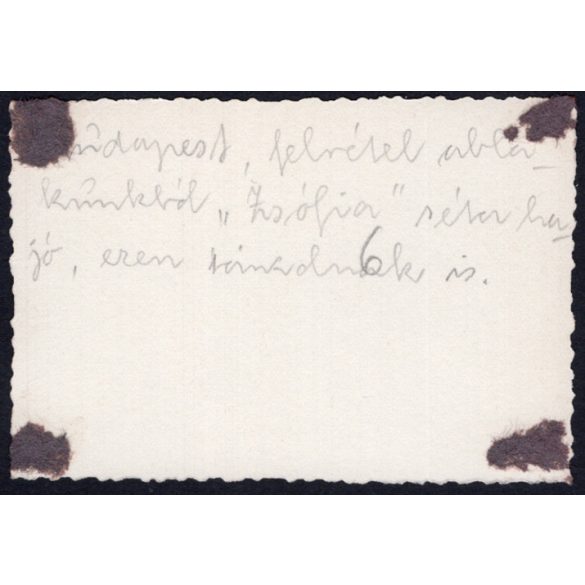 Budapest, felvétel abla-
kunkból „Zsófia" séta ha-
jó, ezen táncolnak is.
6